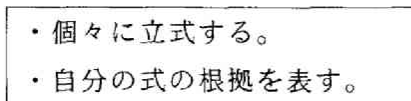 ・個々に立式する。
・自分の式の根拠を表す。